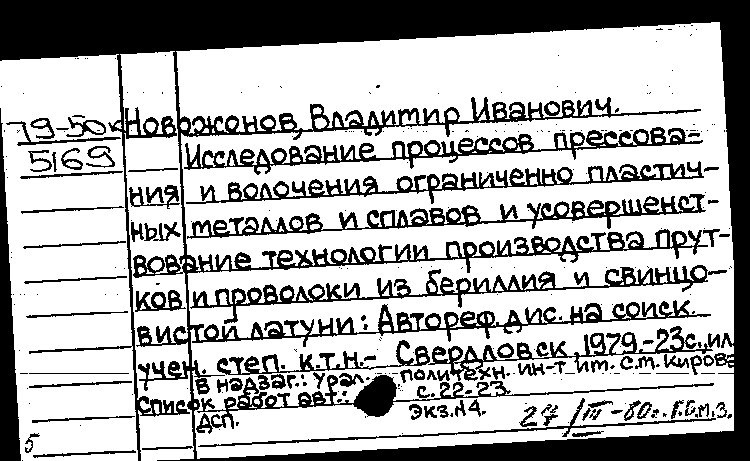 79-50к Новожонов, Владимир Иванович.
5169 Исследование процессов прессова-
ния и волочения ограниченно пластич-
ных металлов и сплавов и усовершенст-
вование технологии производства прут-
ков и проволоки из бериллия и свинцо-
вистой латуни: Автореф. дис. на соиск.
учен. степ. к.т.н.- Свердловск, 1979.-23с., ил
В надзаг.: Урал. политехн. ин-т им. С.М. Кирова
Список работ авт.: с. 22-23.
ДСП. Экз.№4. 27/III-80г.
5